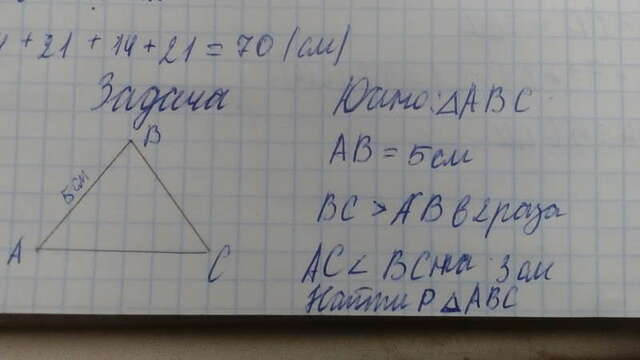 + 21 + 14 + 21 = 70 (см)
Задача
Дано: △ABC
B
5 см
AB = 5 см
BC > AB в 2 раза
A
C
AC < BC на 3 см
Найти P △ABC